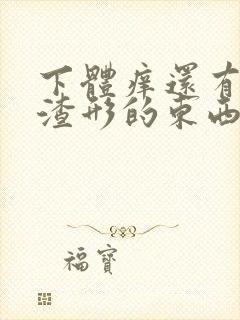 下體痒還有
渣形的東西
福寶